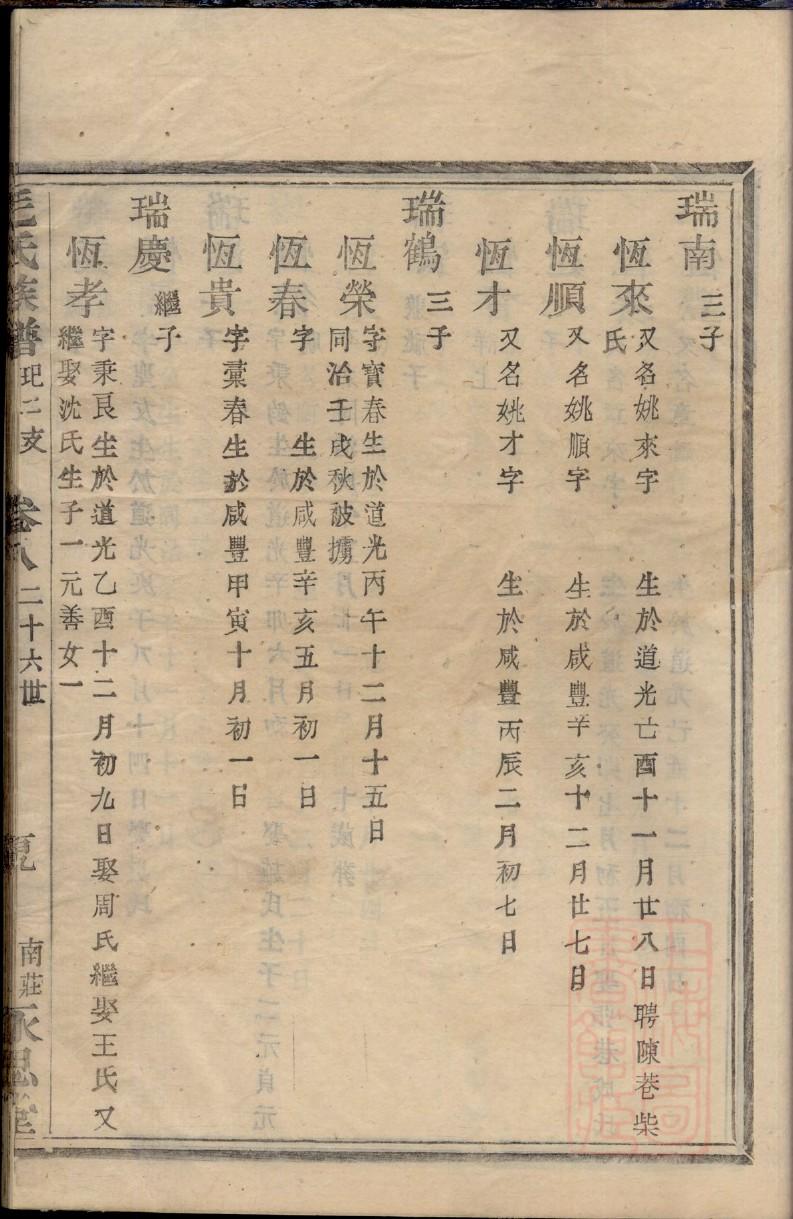 瑞南 三子
恆來 又名姚來字 生於道光己酉十一月廿八日聘陳巷柴
氏
恆順 又名姚順字 生於咸豐辛亥十二月廿七日
恆才 又名姚才字 生於咸豐丙辰二月初七日
瑞鶴 三子
恆榮 字寶春生於道光丙午十二月十五日
同治壬戌秋被擄
恆春 字 生於咸豐辛亥五月初一日
恆貴 字藁春生於咸豐甲寅十月初一日
瑞慶 繼子
恆孝 字秉良生於道光乙酉十二月初九日娶周氏繼娶王氏又
繼娶沈氏生子一元善女一
毛氏族譜 玘二支 卷八 二十六世 南莊 永思堂